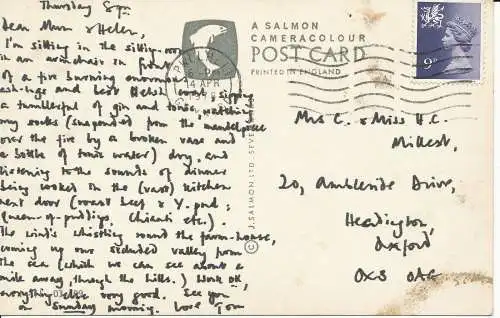 Thursday 8pm
Dear Mum & Helen,
I'm sitting in the sitting-room
in an armchair in front
of a fire burning enormous
ash-logs and best Welsh coal, sipping
a tumblerful of gin and tonic, watching
my socks (suspended from the mantelpiece
over the fire by a broken vase and
a bottle of tonic water) dry, and
listening to the sounds of dinner
being cooked in the (vast) kitchen
next door (roast beef & Y. pud;
queen-of-puddings, Chianti etc.).
The wind's whistling round the farm-house,
coming up our secluded valley from
the sea (which we can see about a
mile away through the hills.) Work OK,
everything else very good. See you
on Sunday morning. Love Tom
A SALMON
CAMERACOLOUR
POST CARD
PRINTED IN ENGLAND
14 APR
© J. SALMON LTD. SEVENOAKS
9P
Mrs C. & Miss H.C.
20, Ambleside Drive,
Headington,
Oxford
OX3 0AG